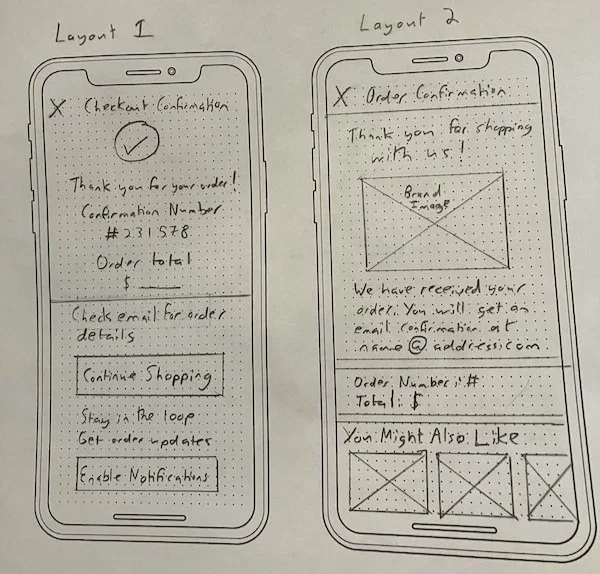 Layout 1
X Checkout Confirmation
Thank you for your order!
Confirmation Number
#231578
Order total
$ ____
Check email for order
details
Continue Shopping
Stay in the loop
Get order updates
Enable Notifications
Layout 2
X Order Confirmation
Thank you for shopping
with us!
Brand
Image
We have received your
order. You will get an
email confirmation at
name@address.com
Order Number: #
Total: $
You Might Also Like